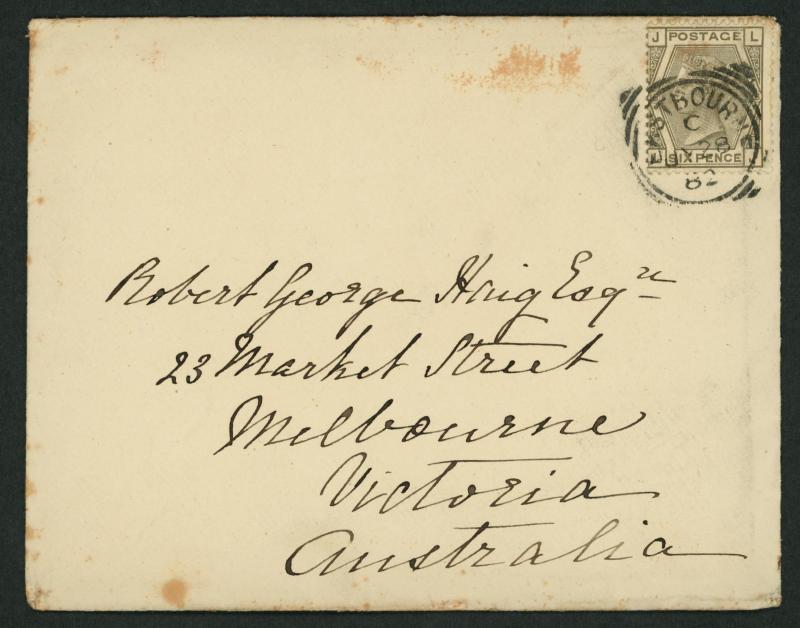 J POSTAGE L
EASTBOURNE
C
28
82
SIX PENCE
Robert George Haig Esqre
23 Market Street
Melbourne
Victoria
Australia